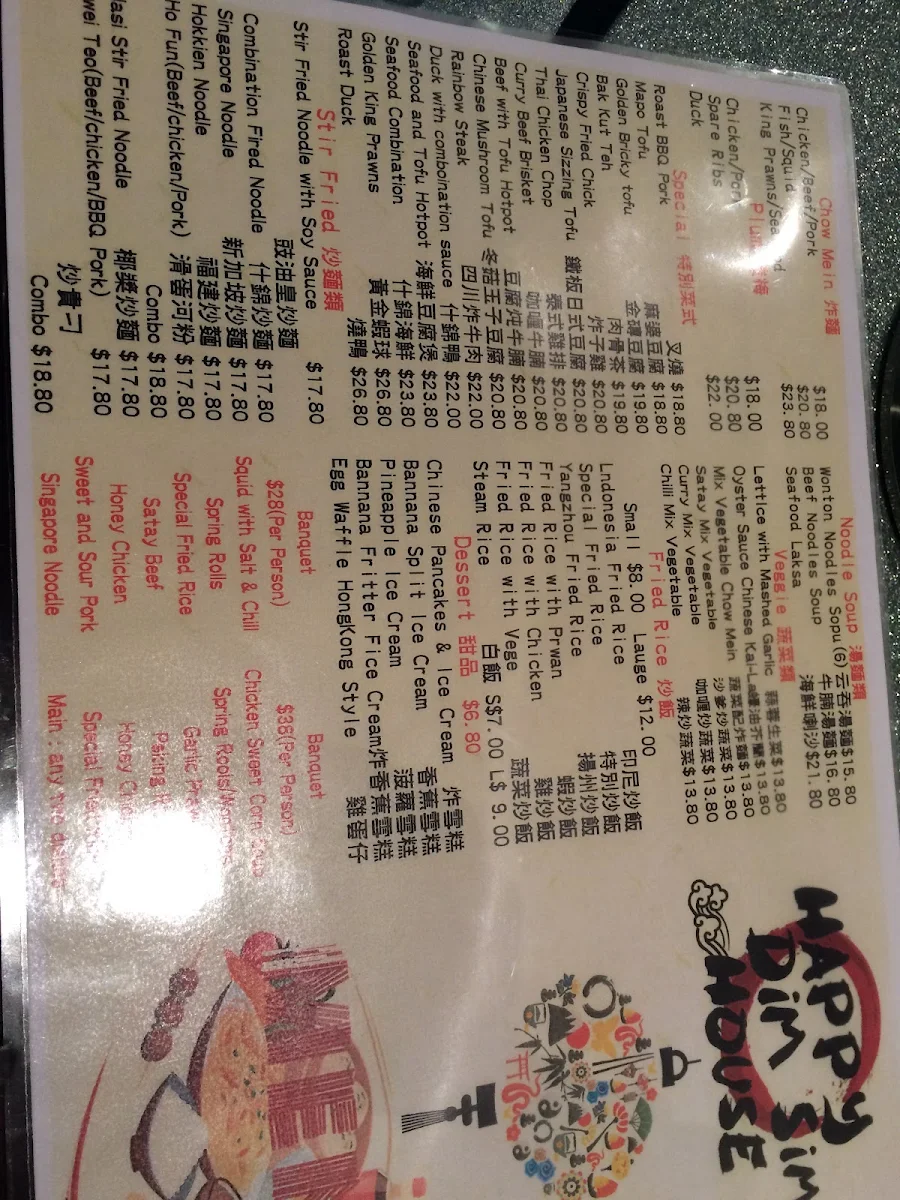 Chow Mein 炒麵
Chicken/Beef/Pork $18.00
Fish/Squid $20.80
King Prawns/Sea $23.80
梅
Chicken/Pork $18.00
Spare Ribs $20.80
Duck $22.00
Special 特別菜式
Roast BBQ Pork 叉燒 $18.80
Mapo Tofu 麻婆豆腐 $18.80
Golden Bricky tofu 金磚豆腐 $19.80
Bak Kut Teh 肉骨茶 $19.80
Crispy Fried Chick 炸子雞 $20.80
Japanese Sizzing Tofu 鐵板日式豆腐 $20.80
Thai Chicken Chop 泰式雞排 $20.80
Curry Beef Brisket 咖喱牛腩 $20.80
Beef with Tofu Hotpot 豆腐炖牛腩 $20.80
Chinese Mushroom Tofu 冬菇玉子豆腐 $20.80
Rainbow Steak 四川炸牛肉 $22.00
Duck with comboination sauce 什錦鴨 $22.00
Seafood and Tofu Hotpot 海鮮豆腐煲 $23.80
Seafood Combination 什錦海鮮 $23.80
Golden King Prawns 黃金蝦球 $26.80
Roast Duck 燒鴨 $26.80
Stir Fried 炒麵類
Stir Fried Noodle with Soy Sauce $17.80
豉油皇炒麵
Combination Fired Noodle 什錦炒麵 $17.80
Singapore Noodle 新加坡炒麵 $17.80
Hokkien Noodle 福建炒麵 $17.80
Ho Fun(Beef/chicken/Pork) 滑蛋河粉 $17.80
Combo $18.80
Stir Fried Noodle 椰漿炒麵 $17.80
Teo(Beef/chicken/BBQ Pork) $17.80
炒貴刁 Combo $18.80
Noodle Soup 湯麵類
Wonton Noodles Sopu(6)云吞湯$15.80
Beef Noodles Soup 牛腩湯麵$16.80
Seafood Laksa 海鮮喇沙$21.80
Veggie 蔬菜類
Lettice with Mashed Garlic 蒜蓉生菜$13.80
Oyster Sauce Chinese Kai-Lan 蠔油芥蘭$13.80
Mix Vegetable Chow Mein 蔬菜配炸麵$13.80
Satay Mix Vegetable 沙爹炒蔬菜$13.80
Curry Mix Vegetable 咖喱炒蔬菜$13.80
Chilli Mix Vegetable 辣炒蔬菜$13.80
Fried Rice 炒飯
Small $8.00 Lauge $12.00
Indonesia Fried Rice 印尼炒飯
Special Fried Rice 特別炒飯
Yangzhou Fried Rice 揚州炒飯
Fried Rice with Prwan 蝦炒飯
Fried Rice with Chicken 雞炒飯
Fried Rice with Vege 蔬菜炒飯
Steam Rice 白飯 S$7.00 L$ 9.00
Dessert 甜品 $6.80
Chinese Pancakes & Ice Cream 炸雪糕
Bannana Split Ice Cream 香蕉雪糕
Pineapple Ice Cream 菠蘿雪糕
Bannana Fritter Fice Cream/炸香蕉雪糕
Egg Waffle HongKong Style 雞蛋仔
Banquet
$28(Per Person)
Squid with Salt & Chill
Spring Rolls
Special Fried Rice
Satay Beef
Honey Chicken
Sweet and Sour Pork
Singapore Noodle
Banquet
$38(Per Person)
Chicken Sweet Corn
Spring Rools
Garlic
Honey
Special
Main : any
HAPPY
DiM SiM
HOUSE